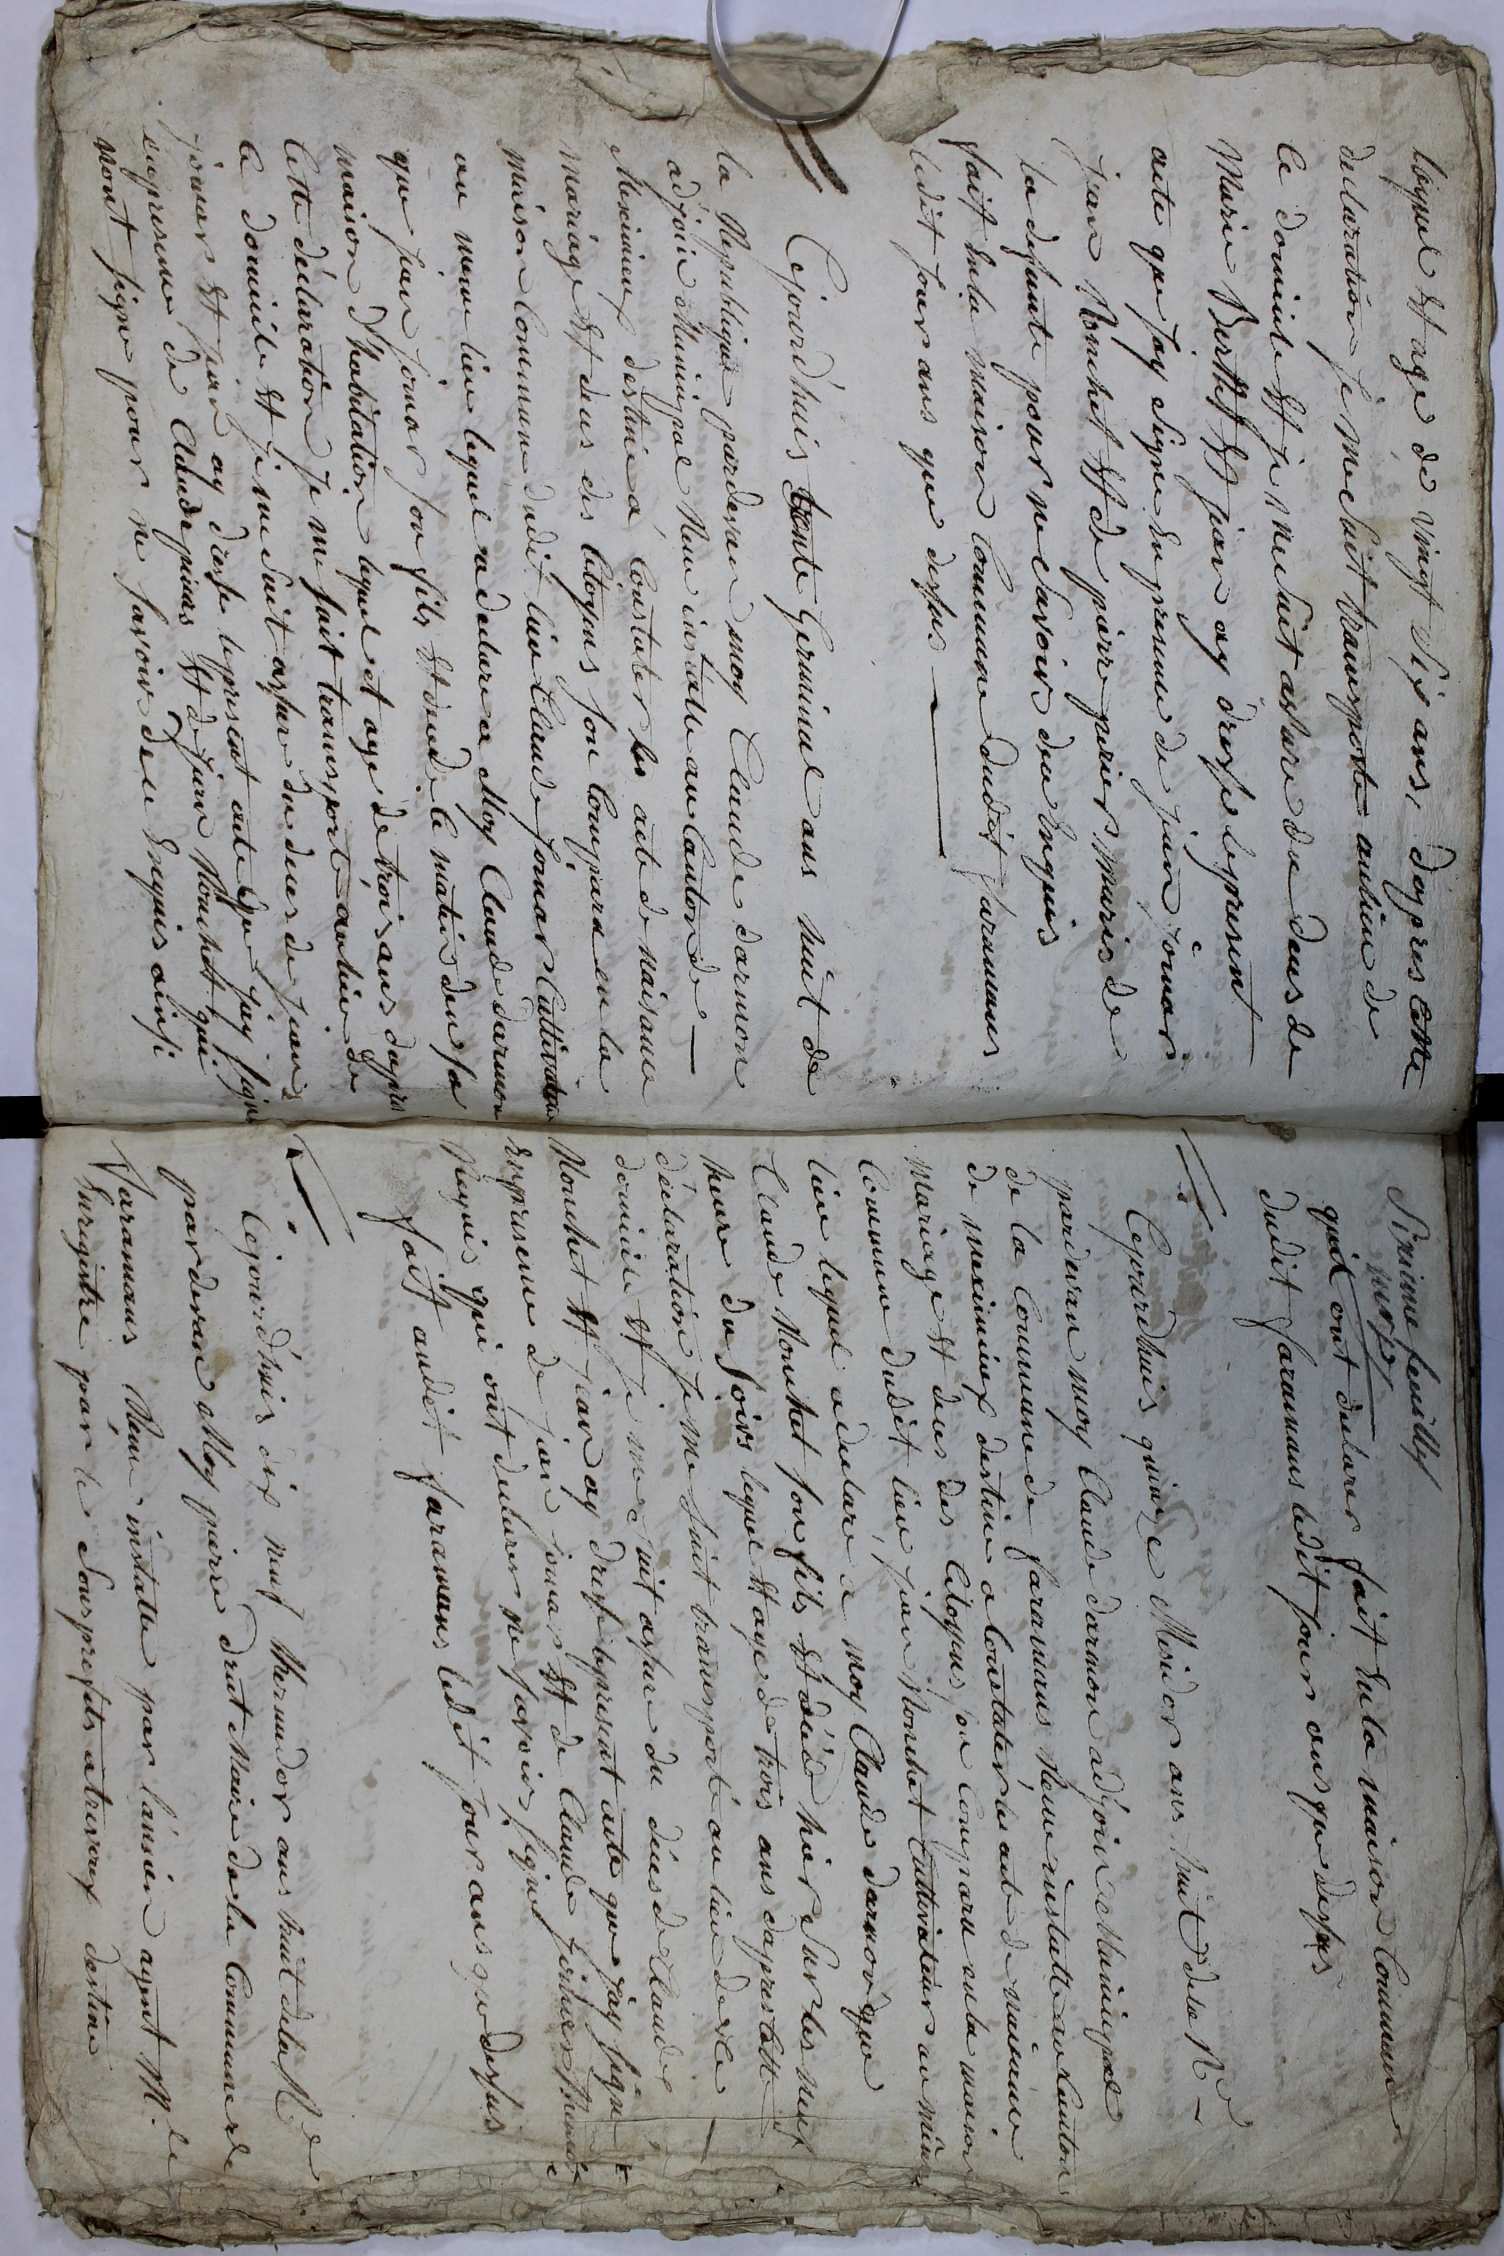 lequel Et agé de vingt Six ans, dapres Cette
declaration je me Suit transporté aulieu de
le domicile Et je me Suit assure du deces de
Marie Berthet Et jean ay dresse lepresent
acte que jay Signe En presence de jean jouvar
jean Monchet Et de pierre perier maric de
la defunte pour ne Savoir deu Enquis
fait En la maison Commune dudit faramans
ledit jour ans que dessus
Cejourd'huis trente Germinal ans huit de
la Republique pardevan moy Claude darmon
adjoin Municipal Neu installe au Canton de
Meximieux destine a Constater les acte de naisance
Mariage Et deces des Citoyens Son Comparu en la
maison Commune dudit lieu Claude jouvar Cultivateur
au même lieu lequel a declare a Moy Claude darmon
que jean jouvar Son fils Et decede le matin den Sa
maison d'habitation lequel et age de trois ans dapres
Cette déclaration je me Suit transporté aulieu de
le domicile Et je me Suit assure du deces de jean
jouvar Et jean ay dresse lepresent acte que jay Signe
enpresence de Claude Et de jean Monchet qui
nont Signe pour ne Savoir deu Enquis ainsi
Sixieme feuillet
qui ont declarer fait En la maison Commune
dudit faramans ledit jour ans que dessus
Cejourdhuis quinze Mesidor ans huit de la R.
pardevan moy Claude darmon adjoin Municipal
de la Commune de faramans Neu installe au Canton
de meximieux destine a Constater les acte de naisance
Mariage Et deces des Citoyens Son Comparu en la maison
Commune dudit lieu, jean Monchet Cultivateur au même
lieu lequel a declare a moy Claude darmon que
Claude Monchet Son fils Et décédé hier Sur les neuf
heure du Soirs lequel Et age de trois ans dapres Cette
declaration je me Suit transporté au lieu de le
domicile Et je me Suit assure du déces de Claude
Monchet Et jean ay dresse lepresent acte que jay Signe
Enpresence de jean jouvar Et de Claude
Requis qui ont declarer ne Savoir Signer
fait audit faramans ledit jour ans que dessus
Cejourd'huis dix neuf thermidor ans huit de la R.
pardevan Moy pierre Drut Maire de la Commune de
faramans Neu installe par lancien agent M. le
Surigitre par le Sousprefets a trevoux destine